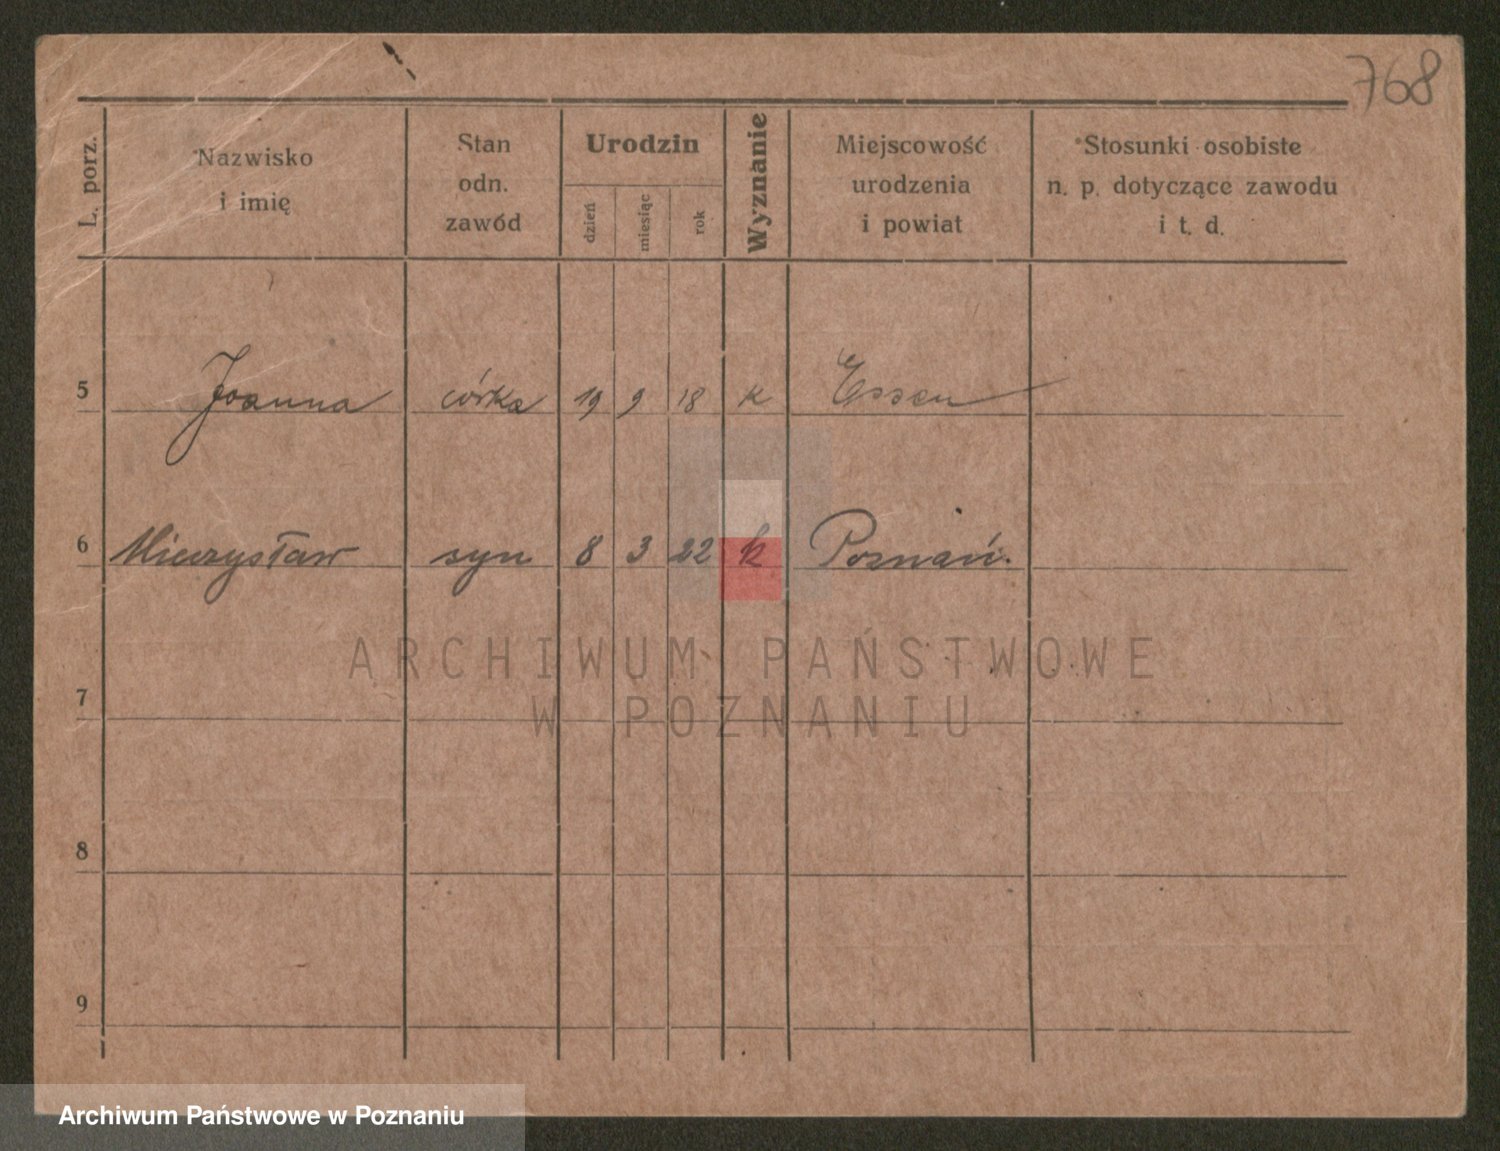 768
L. porz.
Nazwisko
i imię
Stan
odn.
zawód
Urodzin
dzień
miesiąc
rok
Wyznanie
Miejscowość
urodzenia
i powiat
Stosunki osobiste
n. p. dotyczące zawodu
i t. d.
5 Joanna córka 19 9 18 k Essen
6 Mieczysław syn 8 3 22 k Poznań.
ARCHIWUM PAŃSTWOWE
W POZNANIU
7
8
9
Archiwum Państwowe w Poznaniu